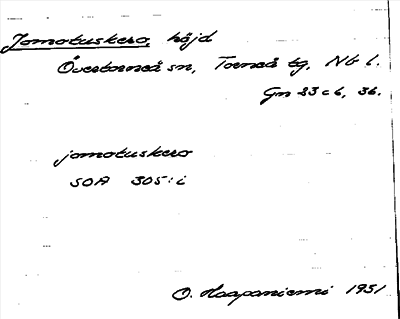 Jomotuskero, höjd
Övertorneå sn, Torneå tg, Nb l.
Gn 23 c 6, 36.
jomotuskero
SOA 305:i
O. Haapaniemi 1951